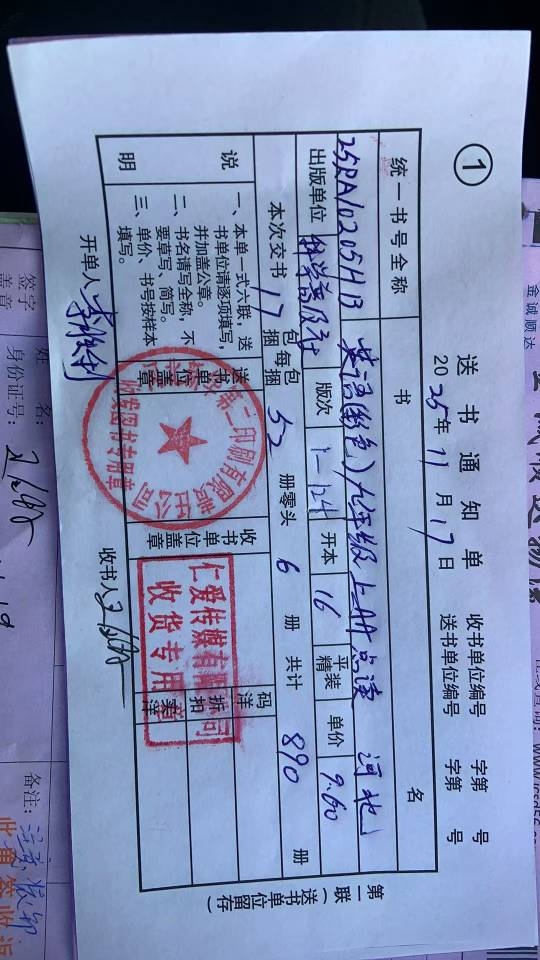 ①
送书通知单
2025年11月17日
收书单位编号 字第 号
送书单位编号 字第 号
统一书号全称
书名
25RA10205HB
英语(彩色)九年级上册点读 河北
出版单位
科学普及社
版次
1-124
开本
16
平装
精
单价
9.60
本次交书 17 包捆 每包捆 52 册 零头 6 册 共计 890 册
说明
一、本单一式六联,送书单位请逐项填写,并加盖公章。
二、书名请写全称,不要草写、简写。
三、单价、书号按样本填写。
送书单位盖章
第二印刷有限责任公司
收发图书专用章
收书单位盖章
仁爱传媒有限公司
收货专用章
码洋
折扣
实洋
开单人
收书人
第一联(送书单位留存)
金诚顺达
签字
盖章
姓名:
身份证号:
备注: